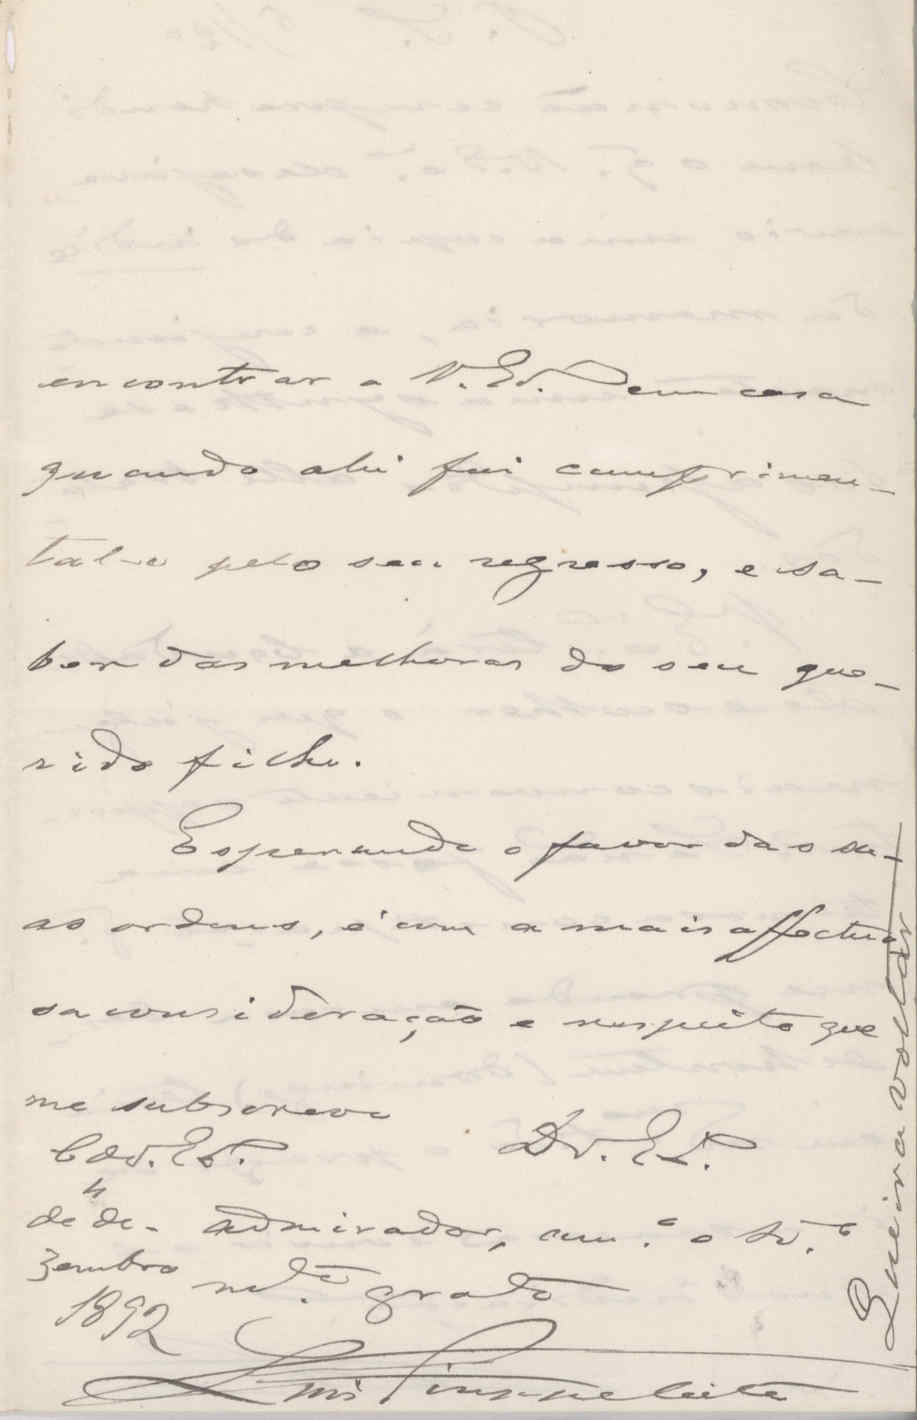 encontrar a V. Ex. em casa
quando ahi fui cumprimen-
tal-o pelo seu regresso, e sa-
ber das melhoras do seu que-
rido filho.
Esperando o favor das su-
as ordens, é com a mais affectuo
sa consideração e respeito que
me subscrevo
De V. Ex.
C de V. Ex.
4
de de-
zembro
1892
admirador, am.º e
m.to grato
Luis
Queira voltar